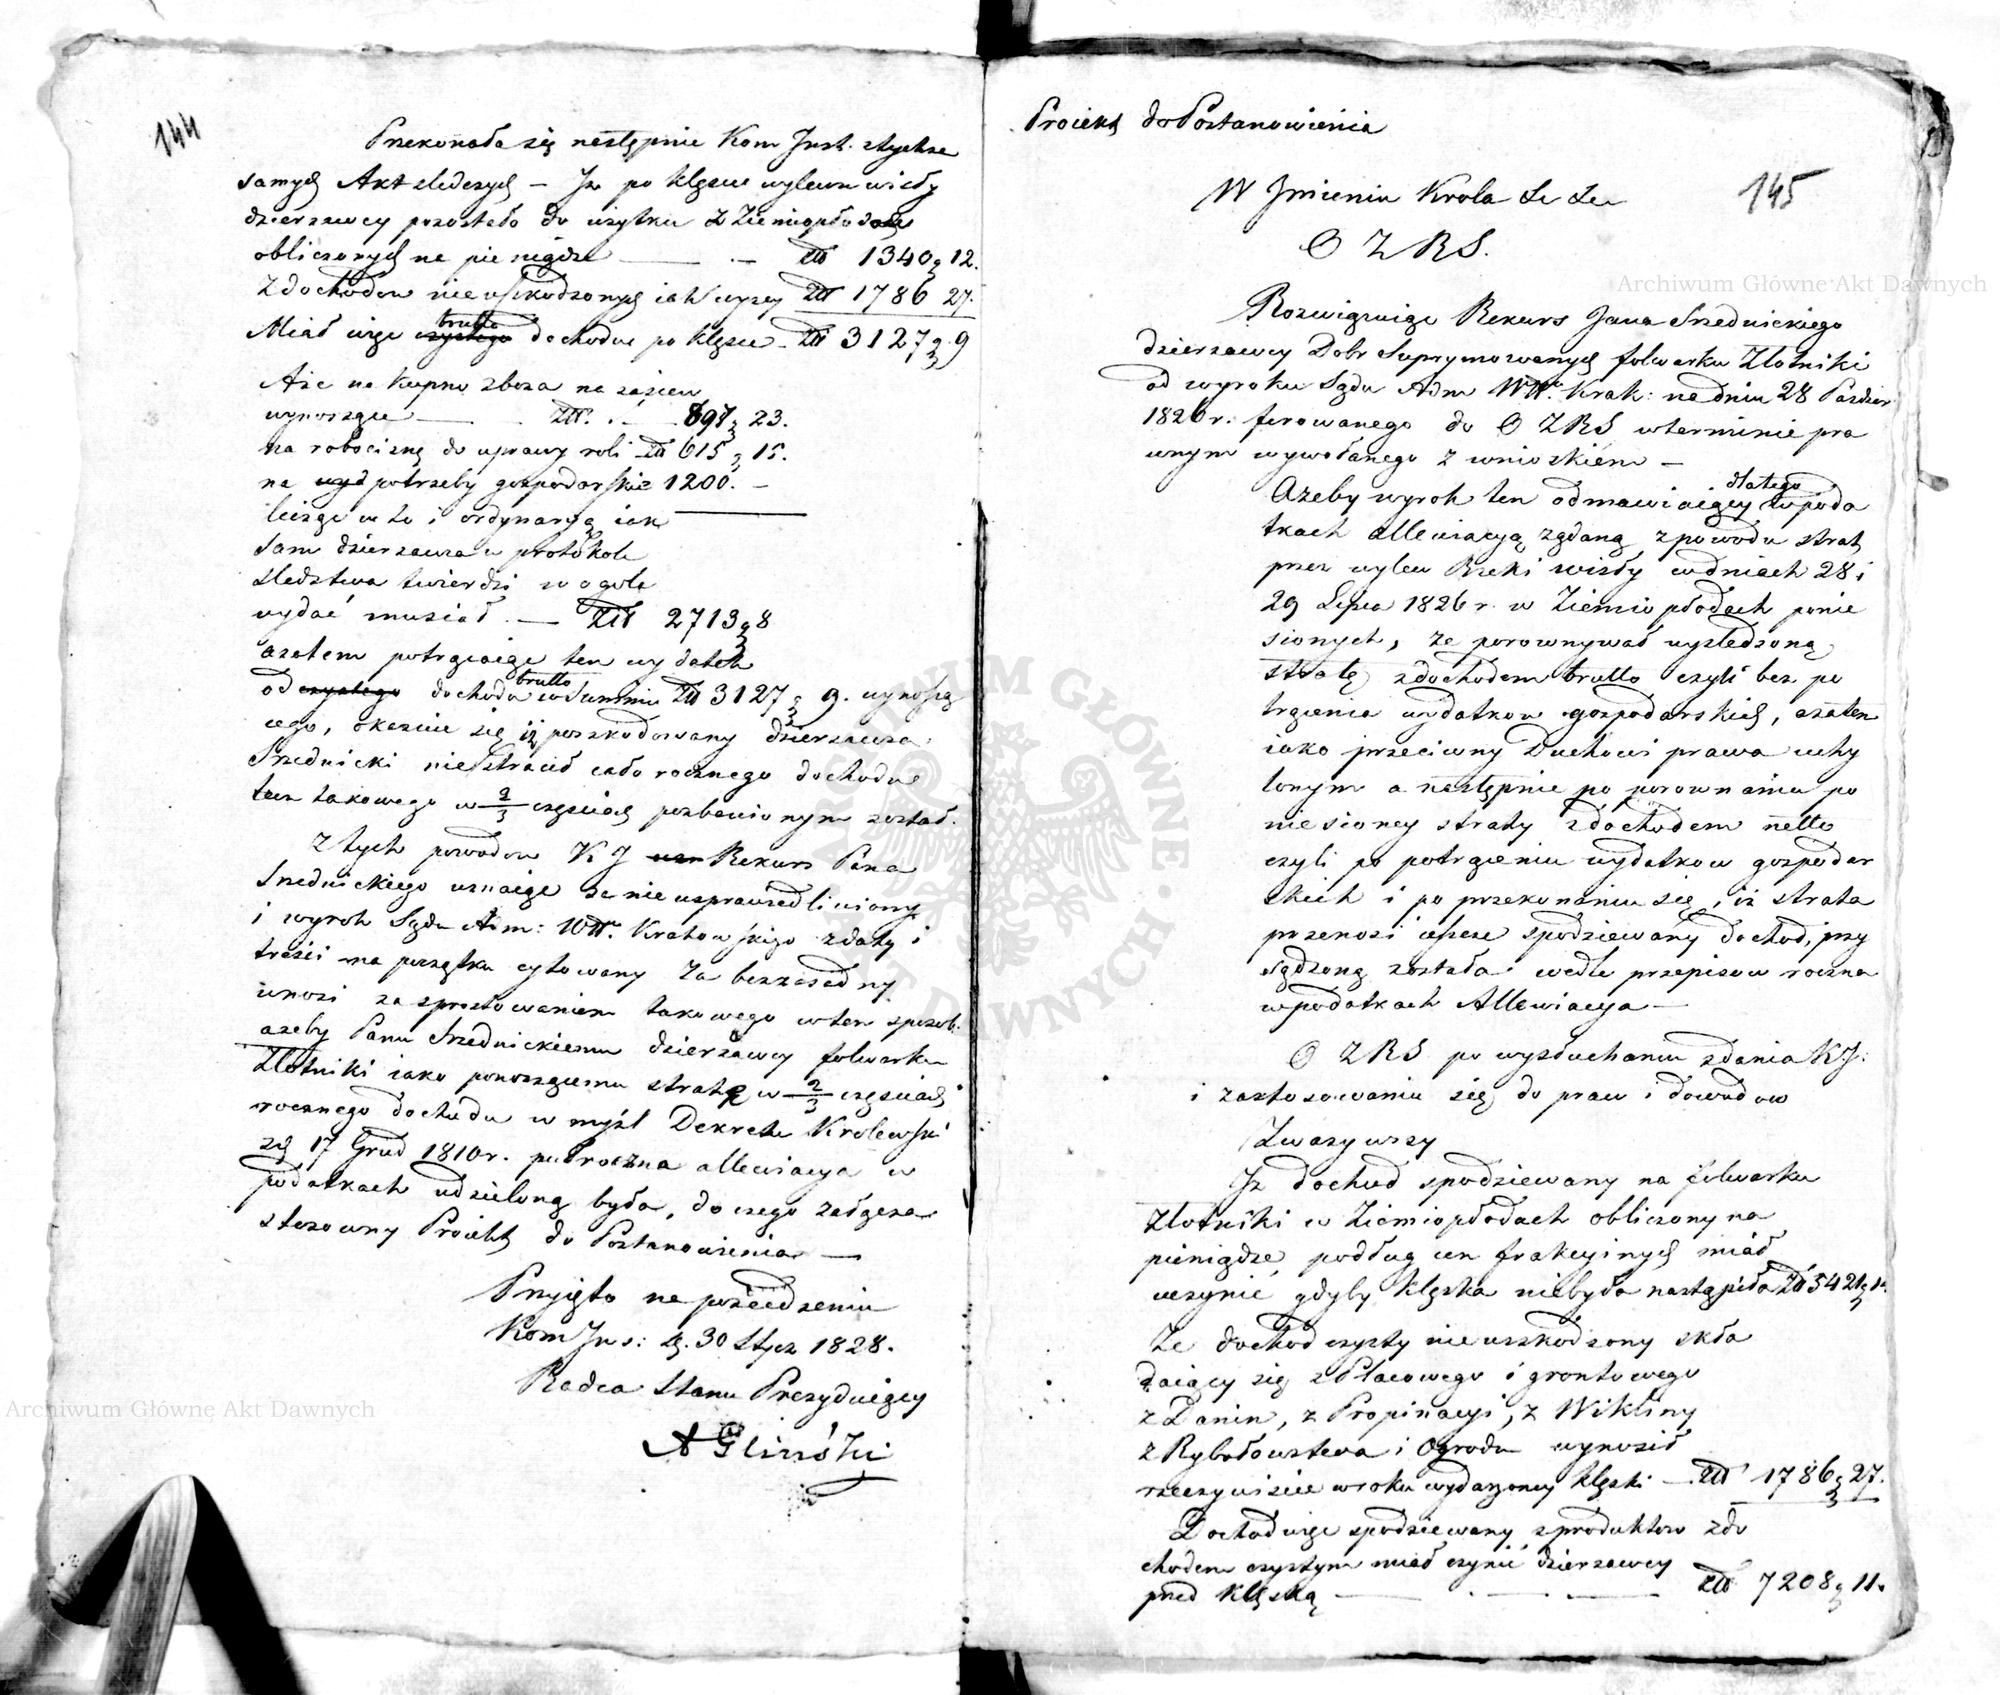 144
Przekonała się następnie Kom Just. ztychże
samych Akt sledczych – Iż po klęsce wylewu wisły
dzierzawcy pozostało do użytku z Ziemiopłodow
obliczonych na pieniądze — Złł 1340 g 12.
Z dochodow nieuszkodzonych iak wyzey Złł 1786 27.
brutto
Miał więc czystego dochodu po klęsce – Złł 3127 g 9
Aże na kupno zboża na zasiew
wynoszące — Złł. 897 g 23.
na robociznę do uprawy roli Złł 615 g 15.
na wyd potrzeby gospodarskie 1200. –
licząc w to i ordynaryą iak
sam dzierzawca w protokole
sledztwa twierdzi w ogole
wydać musiał. — Złł 2713 g 8
azatem potrąciaiąc ten wydatek
brutto
od czystego dochodu w Summie Złł 3127 g 9. wynoszą
cego, okazuie się iż poszkodowany dzierzawca
Srzednicki niestracił cało rocznego dochodu
lecz takowego w 2/3 częsciach pozbawionym został.
Z tych powodow K J Rekurs Pana
Srzednickiego uznaiąc za nieusprawiedliwiony
i wyrok Sądu Adm: Wtt. Krakowskiego z daty i
treści na początku cytowany za bezzasadny
wnosi za sprostowaniem takowego w ten sposob.
azeby Panu Srzednickiemu dzierzawcy folwarku
Zlotniki iako ponoszącemu stratę w 2/3 częsciach
rocznego dochodu w myśl Dekretu Krolewski
ego 17 Grud 1810 r. pułroczna allewiacya w
podatkach udzieloną była, do czego załącza
stosowny Proiekt do Postanowienia —
Przyięto na posiedzeniu
Kom Jus: d. 30 Stycz 1828.
Radca Stanu Prezyduiący
A Gliński
Proiekt do Postanowienia
145
W Jmieniu Krola &c &c
O Z R S.
Rozwiązuiąc Rekurs Jana Srzednickiego
dzierzawcy Dobr Suprymowanych folwarku Zlotniki
od wyroku Sądu Adm Wtt. Krak: na dniu 28 Pazdzier
1826 r. ferowanego do O Z R S w terminie pra
wnym wywołanego z wnioskiem –
dlatego
Azeby wyrok ten odmawiaiący w poda
tkach allewiacyą żądaną z powodu strat
przez wylew Rzeki wisły w dniach 28 i
29 Lipca 1826 r. w Ziemiopłodach ponie
sionych, że porownywał wysledzoną
stratę z dochodem brutto czyli bez po
trącenia wydatkow gospodarskich, azatem
iako przeciwny Duchowi prawa uchy
lonym a następnie po porownaniu po
niesioney straty z dochodem netto
czyli po potrąceniu wydatkow gospodar
skich i po przekonaniu się, iż strata
przenosi ieszcze spodziewany dochod, przy
sądzoną została wedle przepisow roczna
w podatkach Allewiacya —
O Z R S po wysłuchaniu zdania K J:
i zastosowaniu się do praw i dowodow
Zwazywszy
Iż dochod spodziewany na folwarku
Zlotniki w Ziemiopłodach obliczony na
pieniądze podług cen frakcyinych miał
uczynić gdyby klęska niebyła nastąpiła Złł 5421 g 14.
Ze dochod czysty nieuszkodzony skła
daiący się z Placowego i grontowego
z Danin, z Propinacyi, z Wikliny
z Rybołowstwa i Ogrodu wynosił
rzeczywiscie w roku wydarzoney klęski — Złł 1786 g 27.
Dochod więc spodziewany z produktow z do
chodem czystym miał czynić dzierzawcy
przed klęską — Złł 7208 g 11.
Archiwum Główne Akt Dawnych
Archiwum Główne Akt Dawnych
ARCHIWUM GŁÓWNE AKT DAWNYCH